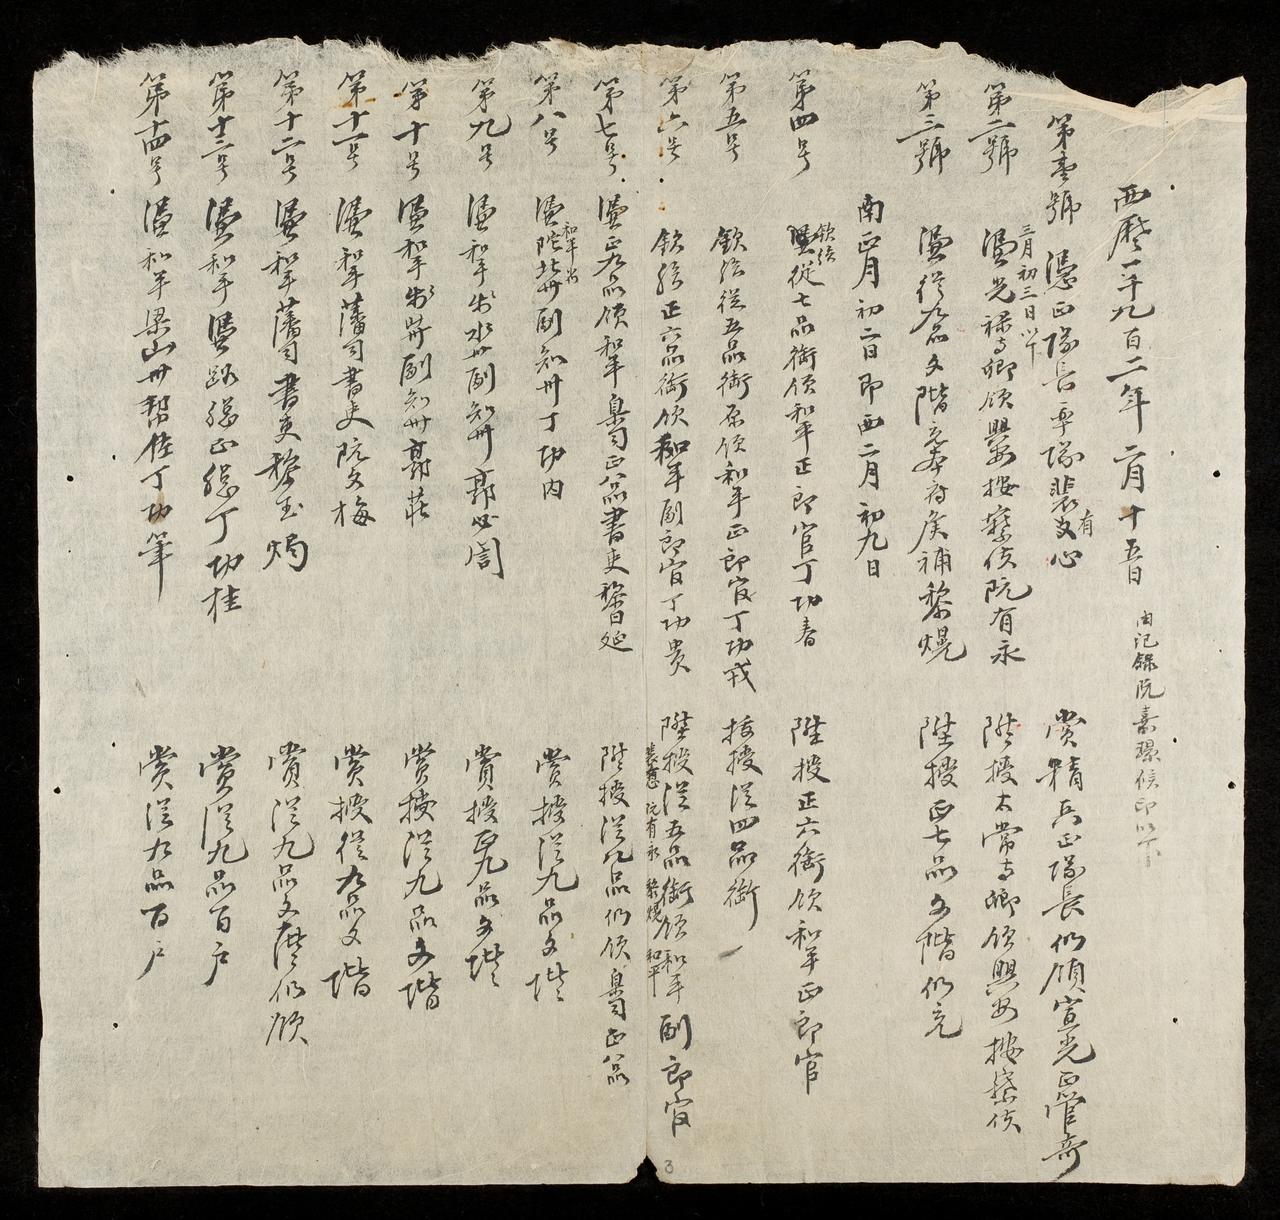 西歷一千九百二年二月十五日 由記錄阮嘉璟候印以下
第壹號 憑正隊長率隊裴文有心 賞精兵正隊長仍領宣光正管奇
三月初三日以下
第二號 憑光祿寺卿領興安按察使阮有永 陞授太常寺卿領興安按察使
第三號 憑從九品文階充本府候補黎熀 陞授正七品文階仍充
南正月初二日即西二月初九日
欽給
第四号 從七品銜領和平正郎官丁功春 陞授正六銜領和平正郎官
第五号 欽給從五品銜原領和平正郎官丁功戎 授從四品銜
第六号 欽給正六品銜領和平副郎官丁功贵 陞授從五品銜領和平副郎官
裴慧 阮有永 黎熀 和平
第七号 憑正九品領和平臬司正八品書吏黎日延 陞授從八品仍領臬司正八品
和平省
第八号 憑陀北州副知州丁功内 賞授從九品文階
第九号 憑和平省水州副知州郭必周 賞授正九品文階
第十号 憑和平州副知州郭莊 賞授從九品文階
第十一号 憑和平藩司書吏阮文梅 賞授從九品文階
第十二号 憑和平藩司書吏黎玉焗 賞從九品文階仍領
第十三号 憑和平總正總丁功桂 賞從九品百戶
第十四号 憑和平梁山州幫佐丁功筆 賞從九品百戶
3